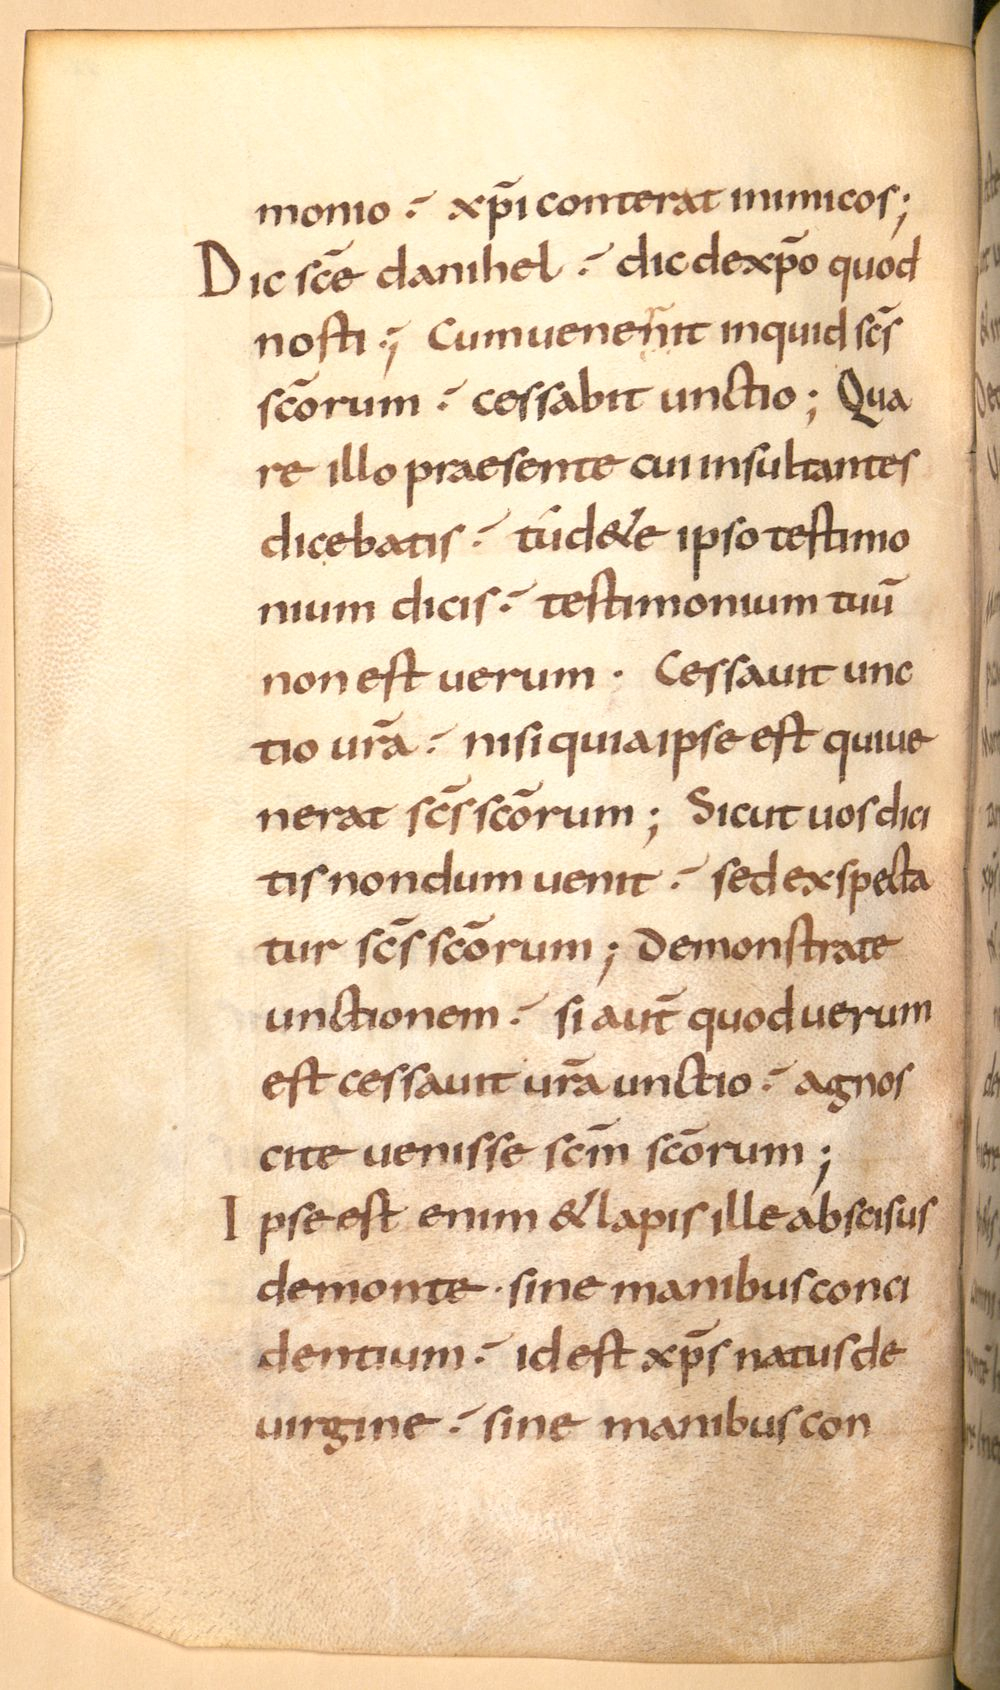 monio · xp̄i conterat inimicos;
Dic sc̄e danihel · dic de xp̄o quod
nosti; Cum uenerit inquid sc̄s
sc̄orum · cessabit unctio; Qua
re illo praesente cui insultantes
dicebatis · tu de te ipso testimo
nium dicis · testimonium tuū
non est uerum · Cessauit unc
tio ur̄a · nisi quia ipse est qui ue
nerat sc̄s sc̄orum; Sicut uos dici
tis nondum uenit · sed exspecta
tur sc̄s sc̄orum; Demonstrate
unctionem · si aut̄ quod uerum
est cessauit ur̄a unctio · agnos
cite uenisse sc̄m sc̄orum;
Ipse est enim & lapis ille abscisus
de monte · sine manibus conci
dentium · id est xp̄s natus de
uirgine · sine manibus con